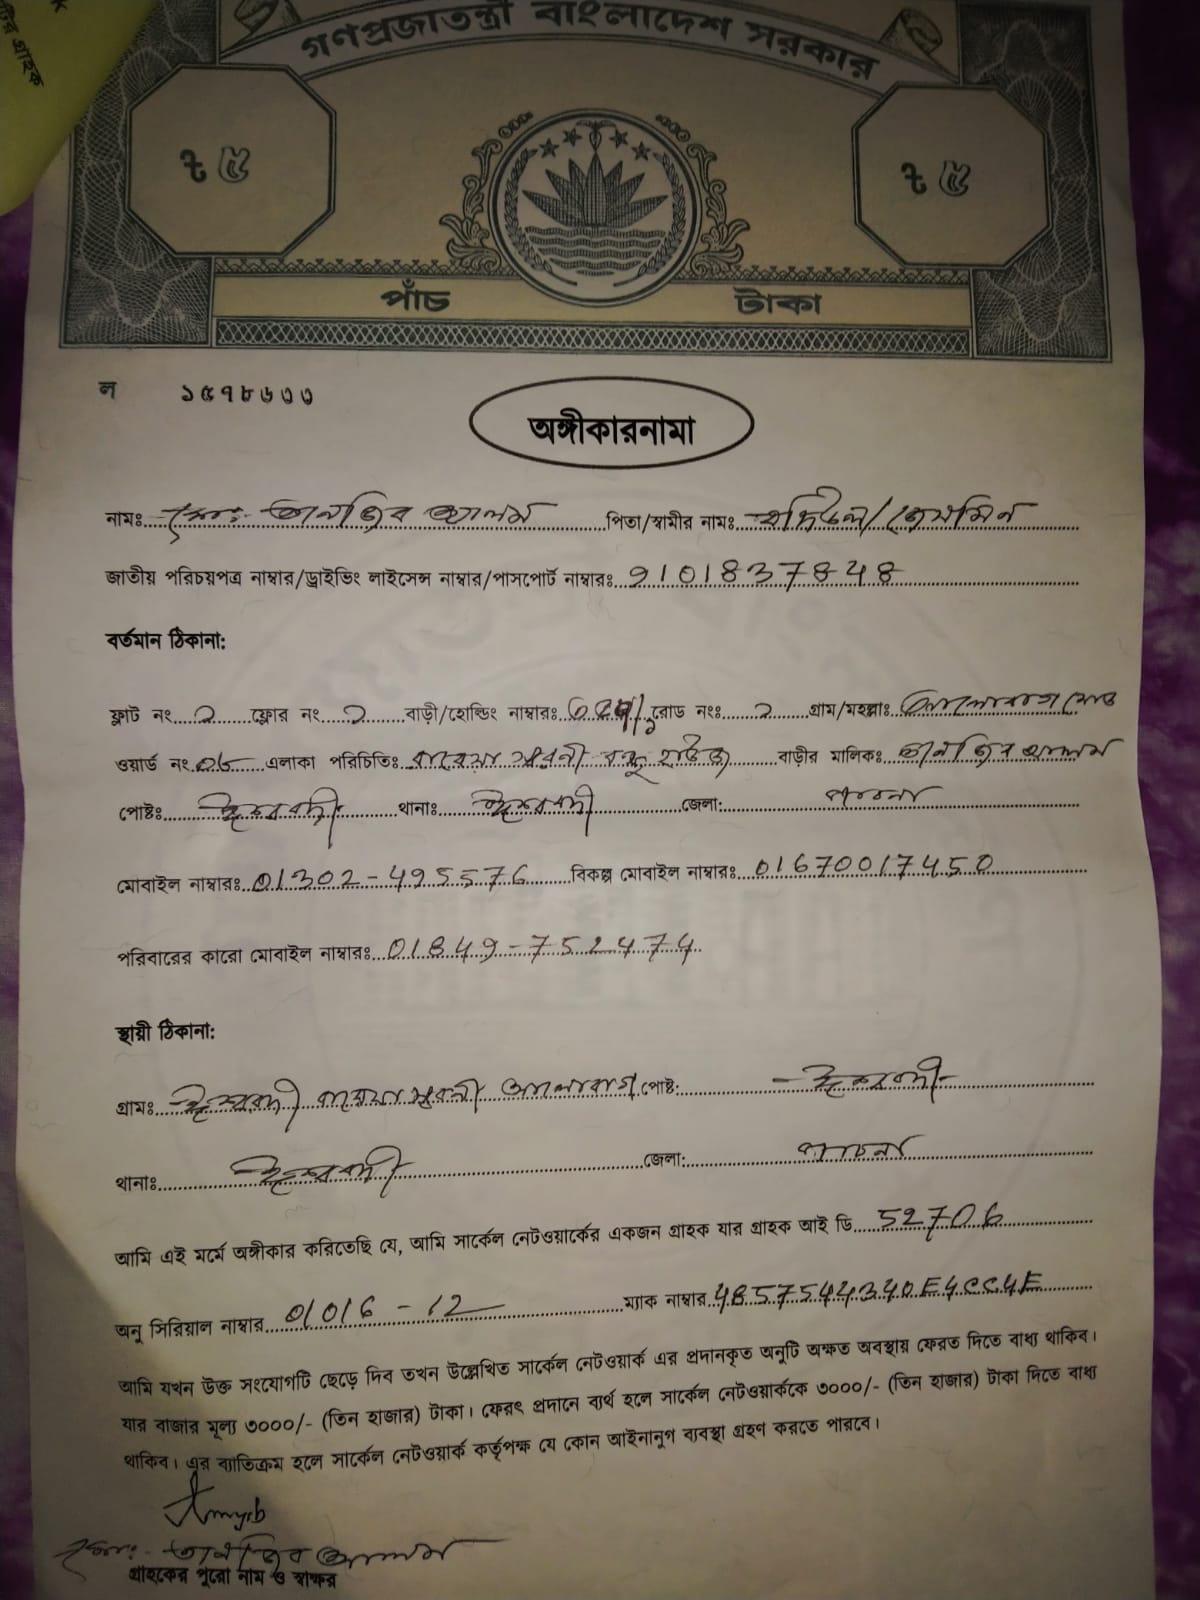 গ্রাহক
গণপ্রজাতন্ত্রী বাংলাদেশ সরকার
৳ ৫ ৳ ৫
পাঁচ টাকা
ল ১৫৭৮৬৩৩
অঙ্গীকারনামা
নামঃ মোঃ তানজিব আলম পিতা/স্বামীর নামঃ
জাতীয় পরিচয়পত্র নাম্বার/ড্রাইভিং লাইসেন্স নাম্বার/পাসপোর্ট নাম্বারঃ 9101837848
বর্তমান ঠিকানা:
ফ্লাট নং ২ ফ্লোর নং ২ বাড়ী/হোল্ডিং নাম্বারঃ রোড নংঃ ২ গ্রাম/মহল্লাঃ
ওয়ার্ড নং ০৬ এলাকা পরিচিতিঃ বাড়ীর মালিকঃ তানজিব আলম
পোষ্টঃ ঈশ্বরদী থানাঃ ঈশ্বরদী জেলা: পাবনা
মোবাইল নাম্বারঃ 01302-495576 বিকল্প মোবাইল নাম্বারঃ 01670017450
পরিবারের কারো মোবাইল নাম্বারঃ 01849-752474
স্থায়ী ঠিকানা:
গ্রামঃ ঈশ্বরদী পোষ্ট: -ঈশ্বরদী-
থানাঃ ঈশ্বরদী জেলা: পাবনা
আমি এই মর্মে অঙ্গীকার করিতেছি যে, আমি সার্কেল নেটওয়ার্কের একজন গ্রাহক যার গ্রাহক আই ডি 52706
অনু সিরিয়াল নাম্বার 01016-12 ম্যাক নাম্বার 4857544340E4CC4E
আমি যখন উক্ত সংযোগটি ছেড়ে দিব তখন উল্লেখিত সার্কেল নেটওয়ার্ক এর প্রদানকৃত অনুটি অক্ষত অবস্থায় ফেরত দিতে বাধ্য থাকিব।
যার বাজার মূল্য ৩০০০/- (তিন হাজার) টাকা। ফেরৎ প্রদানে ব্যর্থ হলে সার্কেল নেটওয়ার্ককে ৩০০০/- (তিন হাজার) টাকা দিতে বাধ্য
থাকিব। এর ব্যতিক্রম হলে সার্কেল নেটওয়ার্ক কর্তৃপক্ষ যে কোন আইনানুগ ব্যবস্থা গ্রহণ করতে পারবে।
মোঃ তানজিব আলম
গ্রাহকের পুরো নাম ও স্বাক্ষর